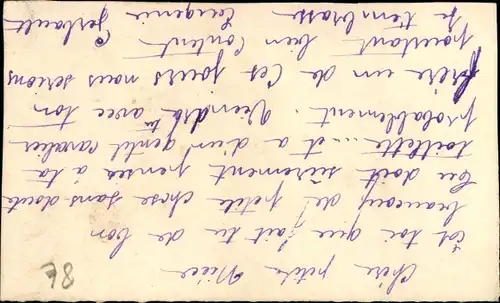 Chère petite Nièce
Et toi que fait tu de bon
beaucoup de petite chose sans doute
tu doit sûrement penser à ta
toilette... et a d'un gentil cavalier
probablement. Viendra tu avec ton
frère un de ces jours nous serions
pourtant bien content
Je t'embrasse
Eugenie Gerbault
78